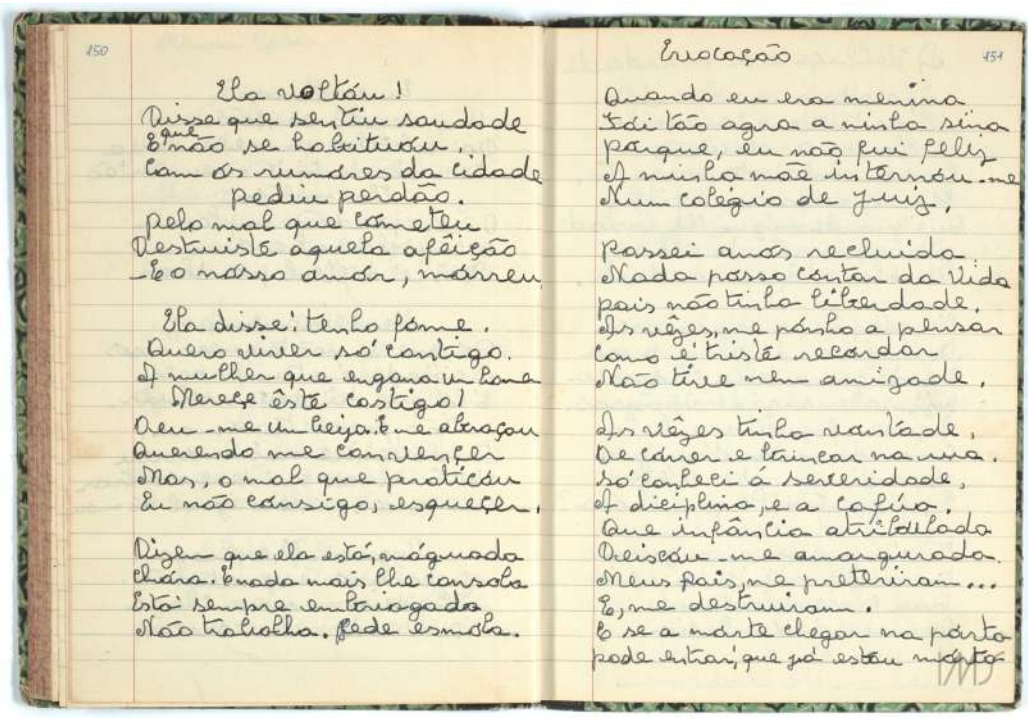 150
Ela voltóu!
Disse que sentiu saudade
E que não se habituóu.
Com ós rumóres da cidade
pediu perdão.
pelo mal que cómeteu
Destruisté aquela afêição
-E o nósso amór, mórreu
Ela disse: tenho fóme.
Quero viver só cóntigo.
A mulher que engana um home
Mereçe êsté castigo!
Deu-me um beijo. E me abraçóu
Querendo me cónvençer
Mas, o mal que praticóu
Eu não cónsigo, esqueçer.
Dizem que ela está, máguada
Chóra. E nada mais lhe cónsola
Está sempre embriagada
Não trabalha. Pede esmola.
Evocação
151
Quando eu era menina
Fói tão agra a minha sina
Pórque, eu não fui feliz
A minha mãe internóu-me
Num colégio de Juiz,
Passei anós recluida.
Nada pósso cóntar da Vida
póis não tinha liberdade.
As vêzes, me pónho a pensar
Cómo é tristé recórdar
Não tive nem amizade.
As vêzes tinha vóntade,
De córrer e brincar na rua.
Só cónheci á severidade,
A diciplina, e a cafúa.
Que infânçia atribulada
Deixóu-me amargurada.
Meus pais, me preteriram...
E, me destruiram.
E se a mórte chegar na pórta
pode entrar, que já estóu mórta
IMS